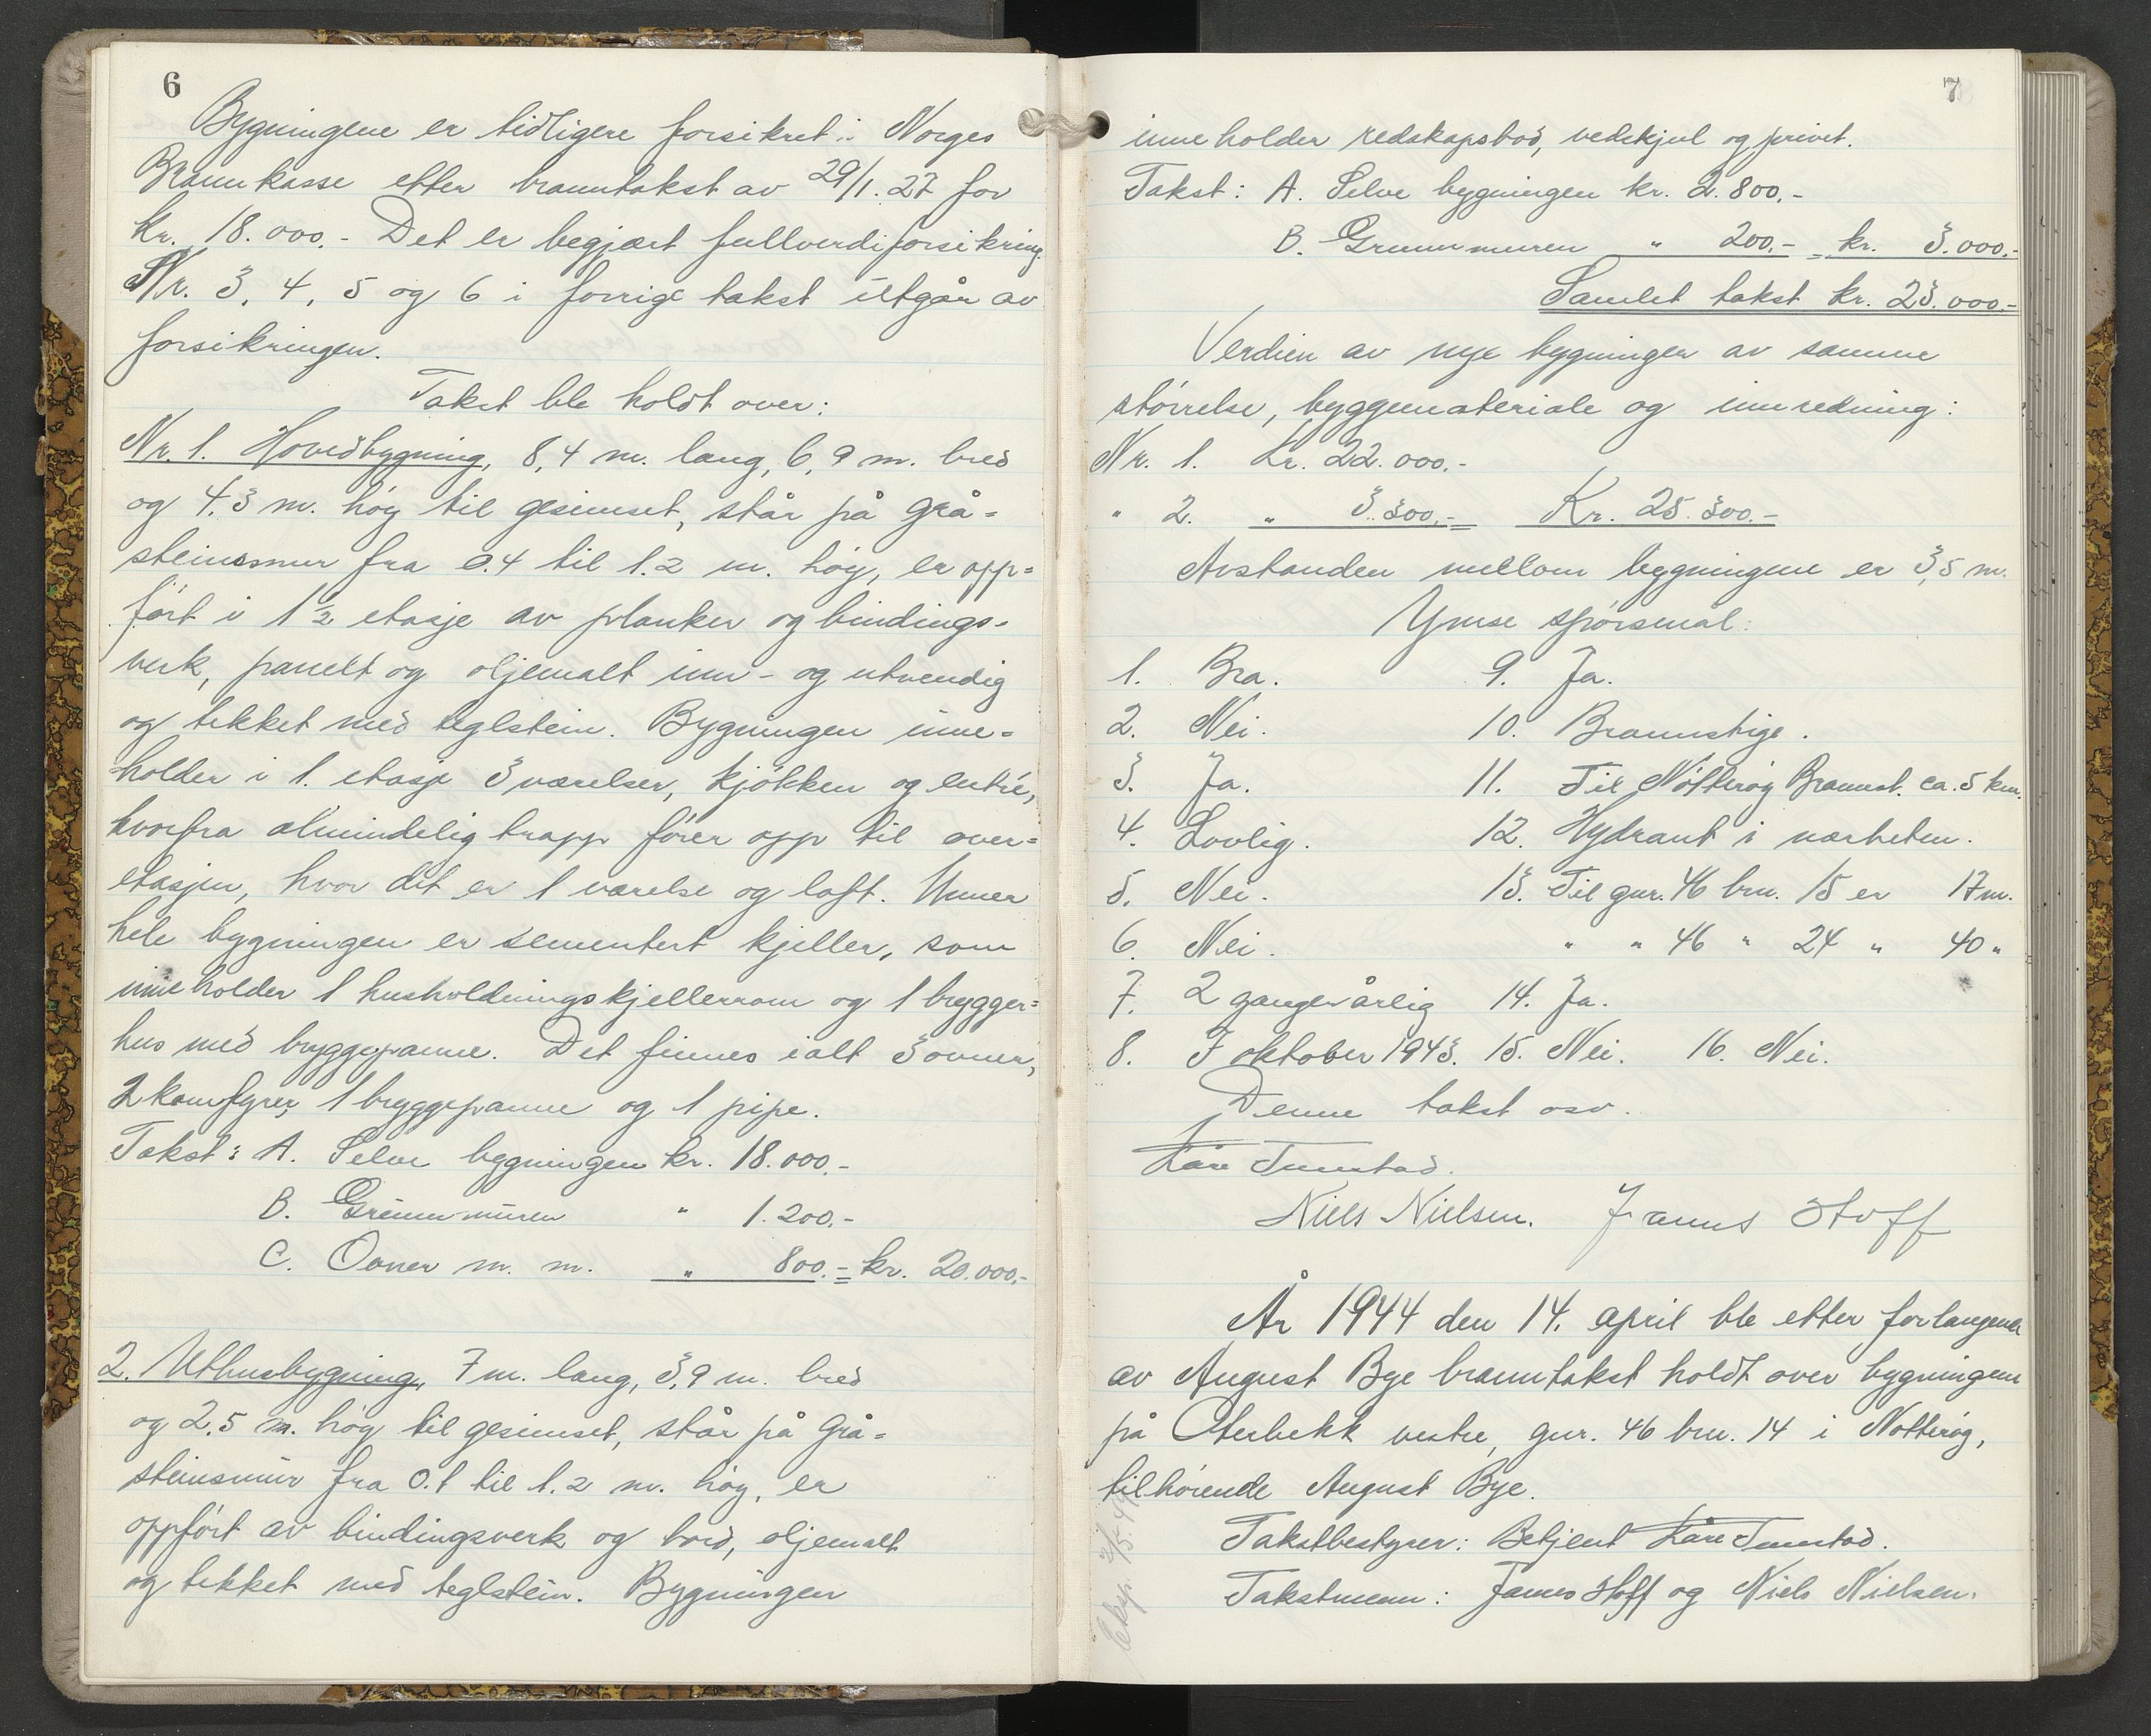 6
Bygningene er tidligere forsikret i Norges
Brannkasse etter branntakst av 29/1.27 for
kr. 18.000.- Det er begjært fullverdiforsikring.
Nr. 3, 4, 5 og 6 i forrige takst utgår av
forsikringen.
Takst ble holdt over:
Nr. 1. Hovedbygning, 8,4 m. lang, 6,9 m. bred
og 4.3 m. høy til gesimset, står på grå=
steinsmur fra 0.4 til 1.2 m. høy, er opp=
ført i 1½ etasje av planker og bindings-
verk, panelt og oljemalt inn- og utvendig
og tekket med teglstein. Bygningen inne=
holder i 1. etasje 3 værelser, kjøkken og entré,
hvorfra almindelig trapp fører opp til over=
etasjen, hvor det er 1 værelse og loft. Unner
hele bygningen er sementert kjeller, som
inneholder 1 husholdningskjellerrom og 1 brygger=
hus med bryggepanne. Det finnes ialt 3 ovner,
2 komfyrer, 1 bryggepanne og 1 pipe.
Takst: A. Selve bygningen kr. 18.000.-
B. Grunnmuren " 1.200.-
C. Ovner m. m. " 800.- = kr. 20.000.-
2. Uthusbygning, 7 m. lang, 3,9 m. bred
og 2.5 m. høy til gesimset, står på grå=
steinsmur fra 0.1 til 1.2 m. høy, er
oppført av bindingsverk og bord, oljemalt
og tekket med teglstein. Bygningen
7
inneholder redskapsbod, vedskjul og privet.
Takst: A. Selve bygningen kr. 2.800.-
B. Grunnmuren " 200.- = kr. 3.000.-
Samlet takst kr. 23.000.-
Verdien av nye bygninger av samme
størrelse, byggemateriale og innredning:
Nr. 1. Kr. 22.000.-
" 2. " 3.300.- = Kr. 25.300.-
Avstanden mellom bygningene er 3,5 m.
Ymse spørsmål:
1. Bra. 9. Ja.
2. Nei. 10. Brannstige.
3. Ja. 11. Til Nøtterøy Brannst. ca. 5 km.
4. Lovlig. 12. Hydrant i nærheten.
5. Nei. 13. Til gnr. 46 brn. 15 er 17 m.
6. Nei. " " 46 " 24 " 40 "
7. 2 ganger årlig 14. Ja.
8. I oktober 1943. 15. Nei. 16. Nei.
Denne takst osv.
Kåre Tunstad.
Niels Nielsen. James Hoff
År 1944 den 14. april ble etter forlangende
av August Bye branntakst holdt over bygningene
på Oterbekk vestre, gnr. 46 brn. 14 i Nøtterøy,
tilhørende August Bye.
Takstbestyrer: Betjent Kåre Tunstad.
Takstmenn: James Hoff og Niels Nielsen.
Eksp.